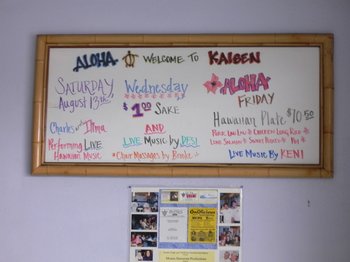 ALOHA WELCOME TO KAISEN
SATURDAY
August 13th
Charles & Ilima
Performing LIVE
Hawaiian Music
Wednesday
$1.00 SAKE
AND
LIVE Music by DESI
*Chair Massages by Brooke
ALOHA
FRIDAY
Hawaiian Plate $10.50
Pork Lau Lau * Chicken Long Rice *
Lomi Salmon * Sweet Potato * Poi *
LIVE Music By KENI